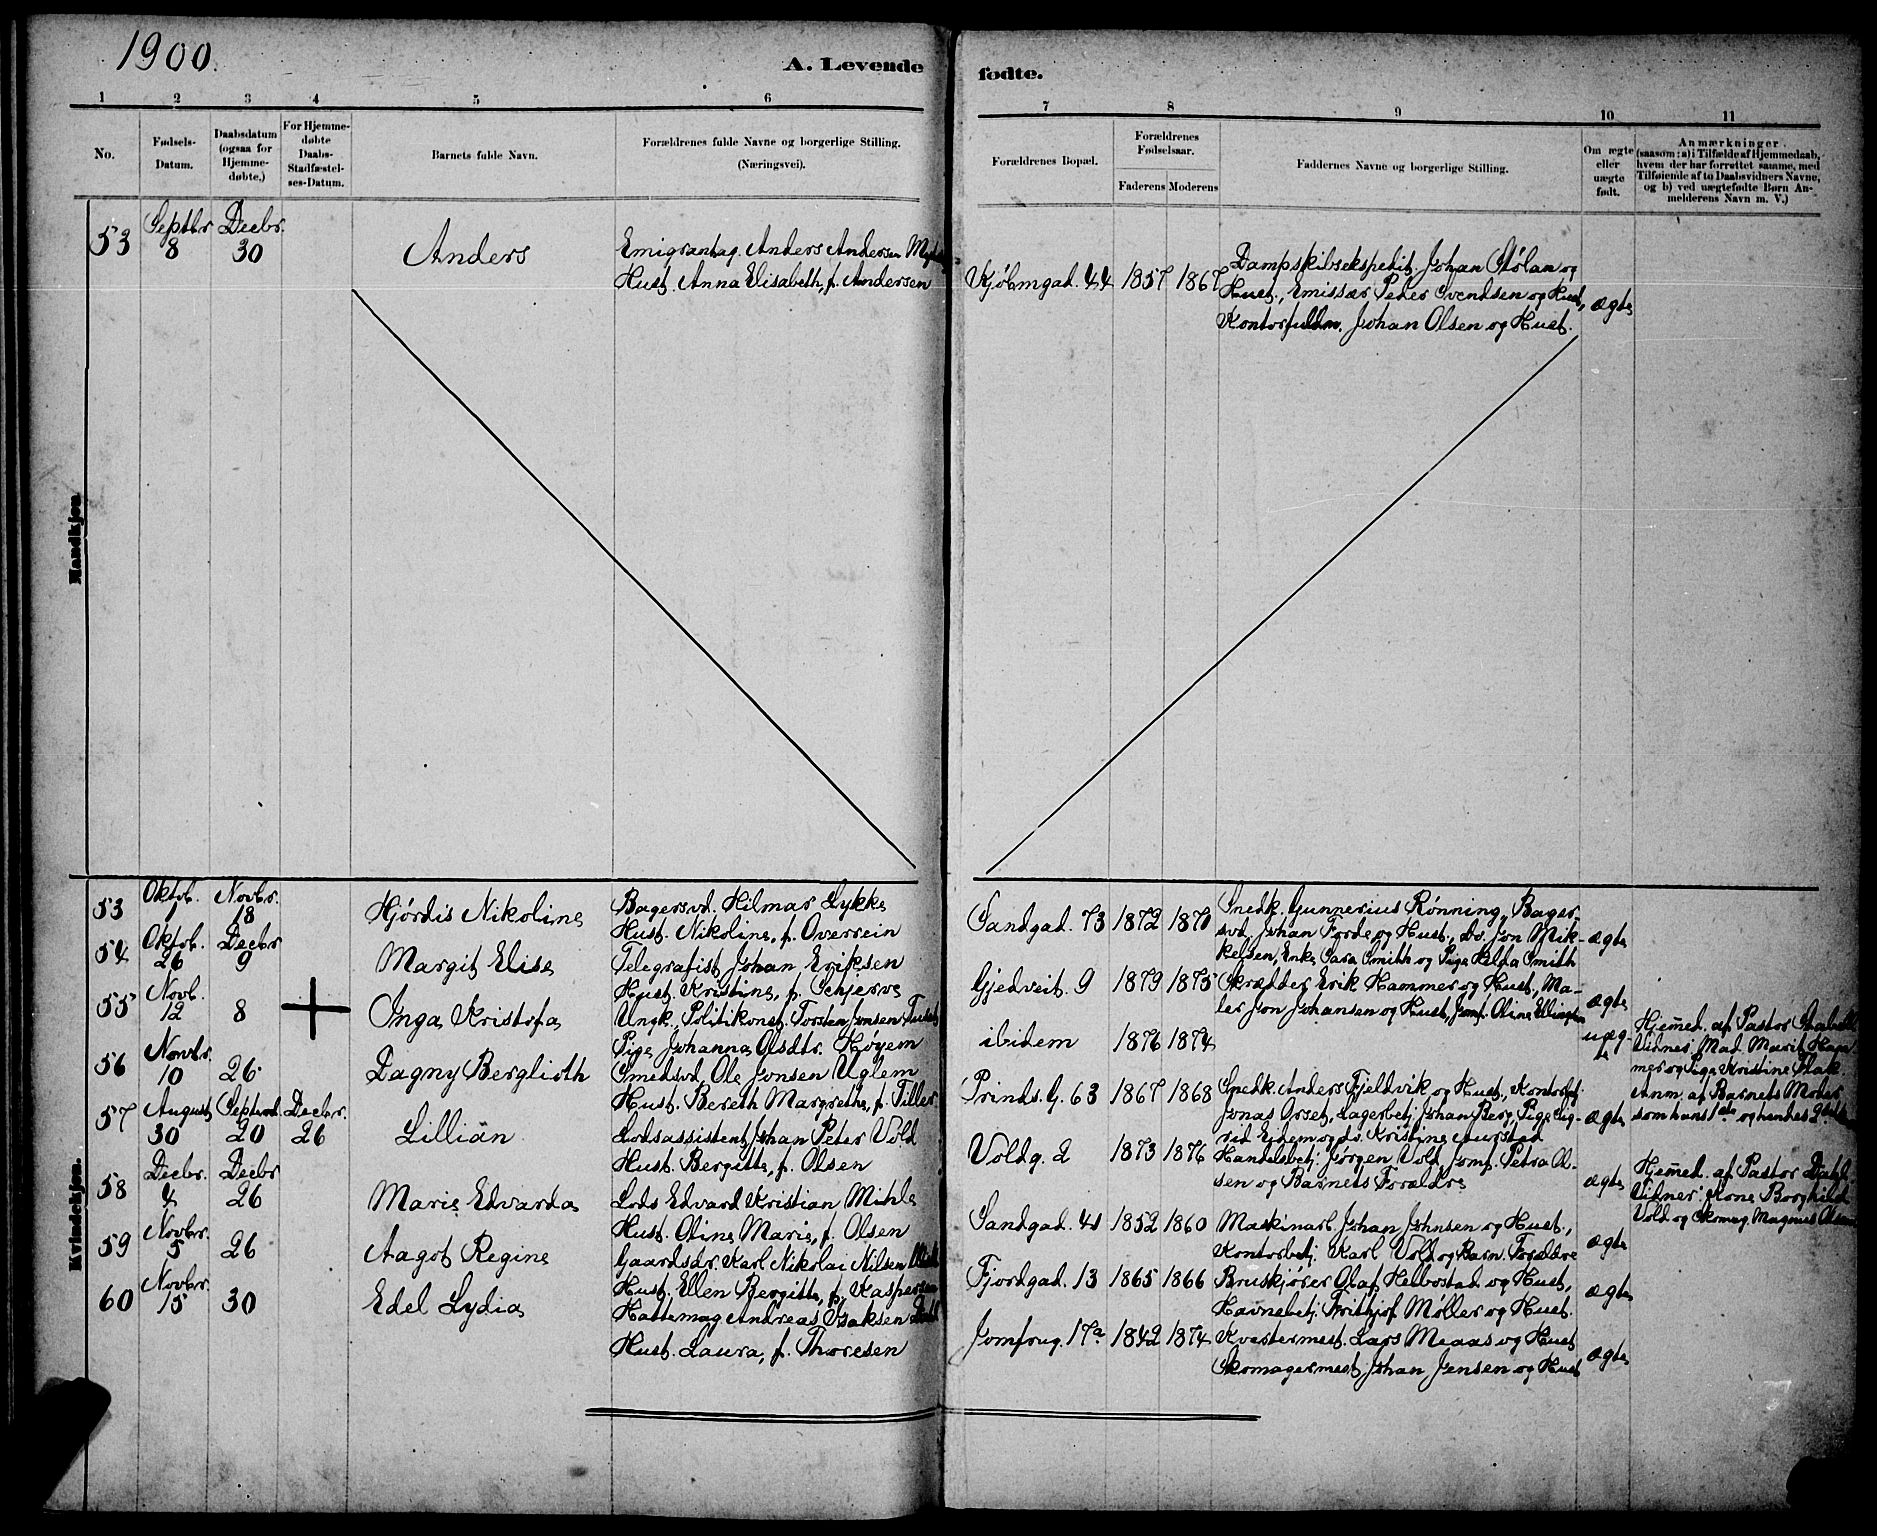 1900.
A. Levende fødte.
1 2 3 4 5 6 7 8 9 10 11
No.
Fødsels-
Datum.
Daabsdatum
(ogsaa for
Hjemme-
døbte.)
For Hjemme-
døbte
Daabs-
Stadfæstel-
ses-Datum.
Barnets fulde Navn.
Forældrenes fulde Navne og borgerlige Stilling.
(Næringsvei).
Forældrenes Bopæl.
Forældrenes
Fødselsaar.
Faderens Moderens
Faddernes Navne og borgerlige Stilling.
Om ægte
eller
uægte
født.
Anmærkninger
(saasom: a) i Tilfælde af Hjemmedaab,
hvem der har forrettet samme, med
Tilføiende af to Daabsvidners Navne,
og b) ved uægtefødte Børn An-
melderens Navn m. V.)
Mandkjøn
53 Septbr. 8 Decbr. 30
Anders
Emigrantag. Anders Andersen
Hust. Anna Elisabeth, f. Andersen
Kjøbmgad. 44 1857 1867
Dampskibsekspedit. Johan Stølan og
Hust., Emissær Peder Svendsen og Hust,
Kontorfuldm. Johan Olsen og Hust.
ægte
Kvindekjøn.
53 Oktob. 1 Novbr. 18
Hjördis Nikoline
Bagersvd. Hilmar Lykke
Hust. Nikoline, f. Overrein
Sandgad. 73 1872 1870
Snedk. Gunnerius Rönning, Bager-
svd. Johan Forde og Hust., do. Jon Mik-
kelsen, Enke Sara Smith og Pige Hilda Smith
ægte
54 Oktob. 26 Decbr 9
Margit Elise
Telegrafist Johan Eriksen
Hust. Kristine, f. Schjerve
Gjedveit. 9 1879 1875
Skrædder Erik Hammer og Hust., Ma-
ler Jon Johansen og Hust, Jomf. Oline
ægte
55 Novb. 12 8
Inga Kristofa
Ungk., Politikonst. Torsten Jonsen
Pige Johanna Olsdtr. Hoyem
ibidem 1876 1874
uæg-
te
Hjemmed. af Pastor
Vidner Mad. Marit
mer og Pige Kristine
Anm. af Barnets Moder
som hans 1ste og hendes 2det
56 Novbr. 10 26
Dagny Berglioth
Smedsvd. Ole Jonsen Uglem
Hust. Bereth Margrethe, f. Tiller
Prinds. G. 63 1867 1868
Snedk. Anders Fjeldvik og Hust., Kontorfg.
Jonas Orset, Lagerbetj. Johan Berg, Pige Sig-
rid Eidem og do. Kristine
ægte
57 August 30 Septemb. 20 Decbr. 26
Lillian
Lodsassistent Johan Peter Vold
Hust. Bergitte, f. Olsen
Voldg. 2 1873 1876
Handelsbetj. Jørgen Vold, Jomf. Petra Ol-
sen og Barnets Forældre
ægte
Hjemmed. af Pastor Dahl,
Vidner: Kone Borghild
Vold og Skomag. Magnus Olsen
58 Decbr. 4 Decbr 26
Marie Edvarda
Lods Edvard Kristian Mihle
Hust. Oline Marie, f. Olsen
Sandgad. 41 1852 1860
Maskinarb. Johan Johnsen og Hust.,
Kontorbetj. Karl Vold og Barn. Forældre
ægte
59 Novbr. 5 26
Aagot Regine
Gaardsdr. Karl Nikolai Nilsen
Hust. Ellen Bergitte, f. Kaspersen
Fjordgad. 13 1865 1866
Bruskjører Olaf Helbostad og Hust,
Havnebetj. Frithjof Møller og Hust.
ægte
60 Novbr. 15 30
Edel Lydia
Hattemag Andreas Isaksen
Hust. Laura, f. Thoresen
Jomfrug. 17a 1842 1874
Kvartermest. Lars Meaas og Hust
Skomagermest. Johan Jensen og Hust
ægte